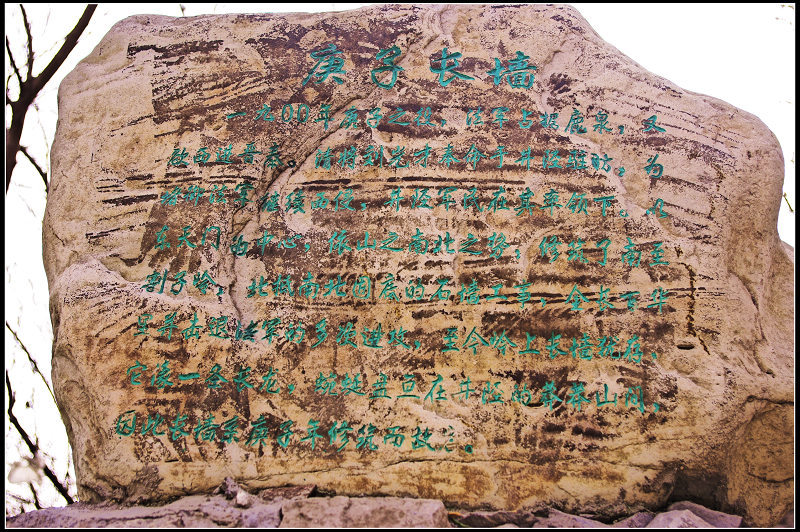 庚子长墙
一九00年庚子之役，法军占据鹿泉，又
欲西进晋秦。清将刘光才奉命于井陉驻防，为
法军继续西侵，井陉军民在其率领下。从
东天门为中心，依山之南北之势，修筑了南至
割子岭，北 南北固底的石墙工事，全长百华
军并击退法军的多次进攻，至今岭上长墙犹存，
它像一条长龙，蜿蜒盘亘在井陉的莽莽山间，
因此长墙系庚子年修筑而故 。